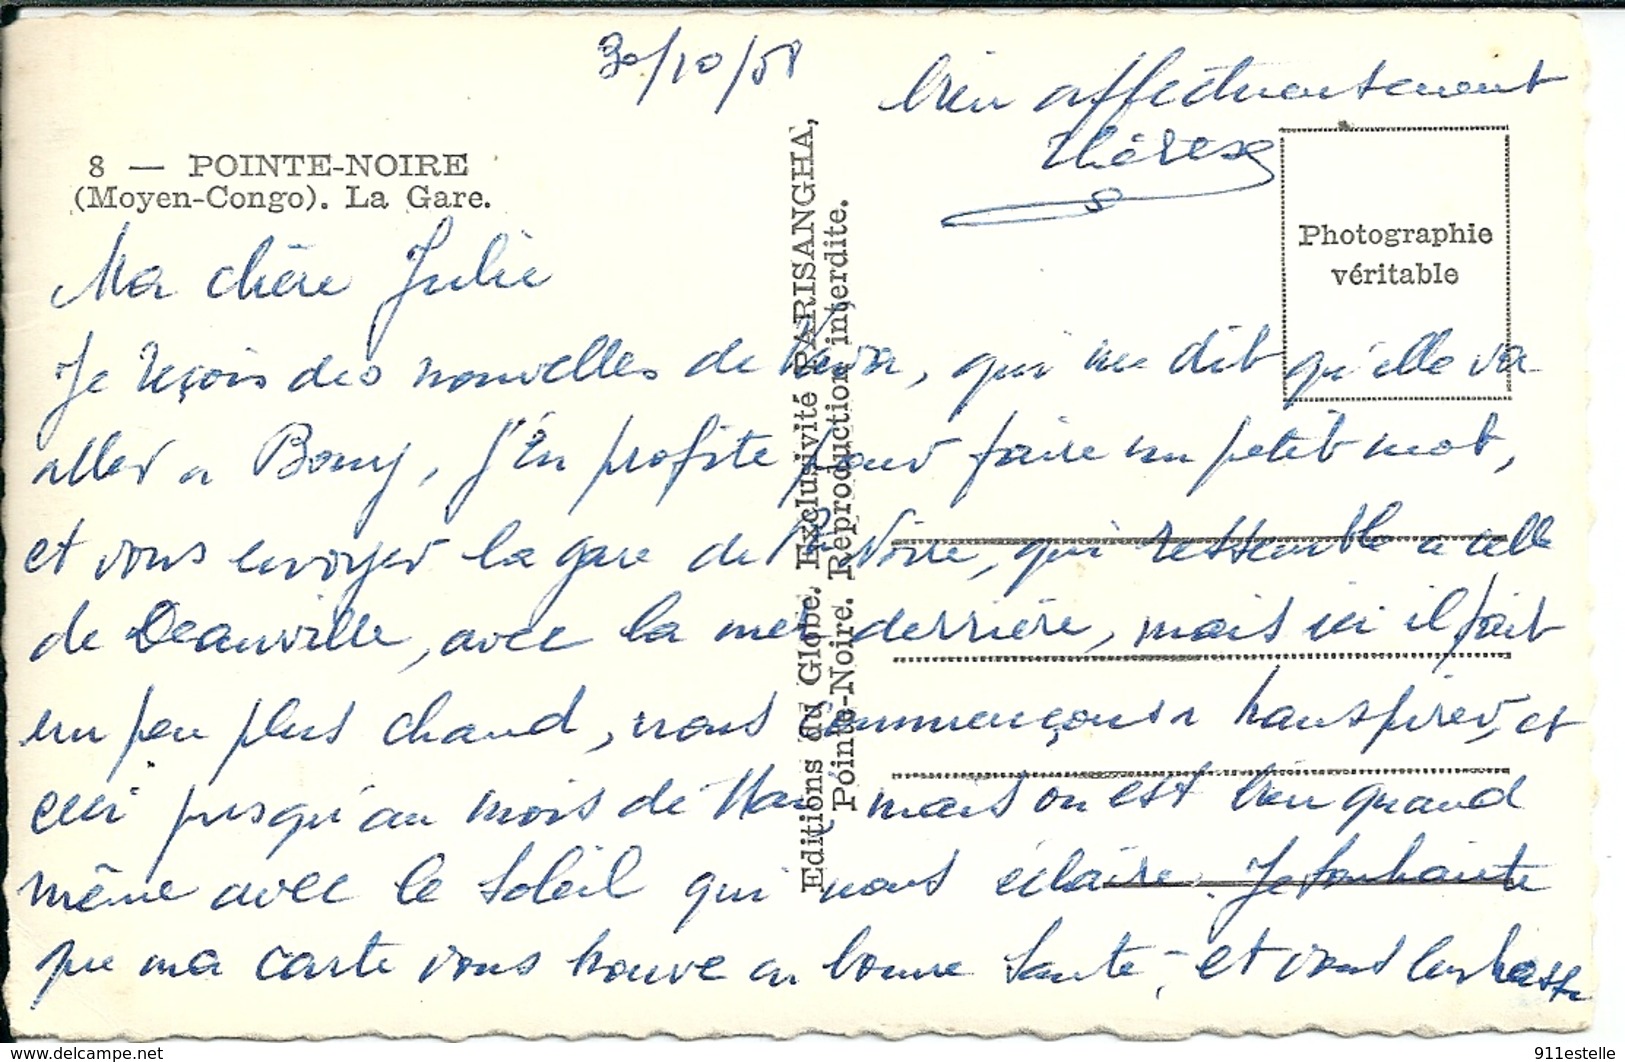 30/10/58
8 — POINTE-NOIRE
(Moyen-Congo). La Gare.
Ma chère Julie
Je reçois des nouvelles de, qui me dit qu'elle va
aller a Bomy, j'en profite pour faire un petit mot,
et vous envoyer la gare de Pte Noire, qui ressemble a celle
de Deauville, avec la mer derrière, mais ici il fait
un peu plus chaud, nous commençons a transpirer, et
ceci jusqu'au mois de Mai, mais on est bien quand
même avec le soleil qui nous éclaire. Je souhaite
que ma carte vous trouve en bonne santé, et vous embrasse
bien affectueusement
Thérèse
Editions du Globe. Exclusivité PARISANGHA,
Pointe-Noire. Reproduction interdite.
Photographie
véritable
http://www.delcampe.net
911estelle